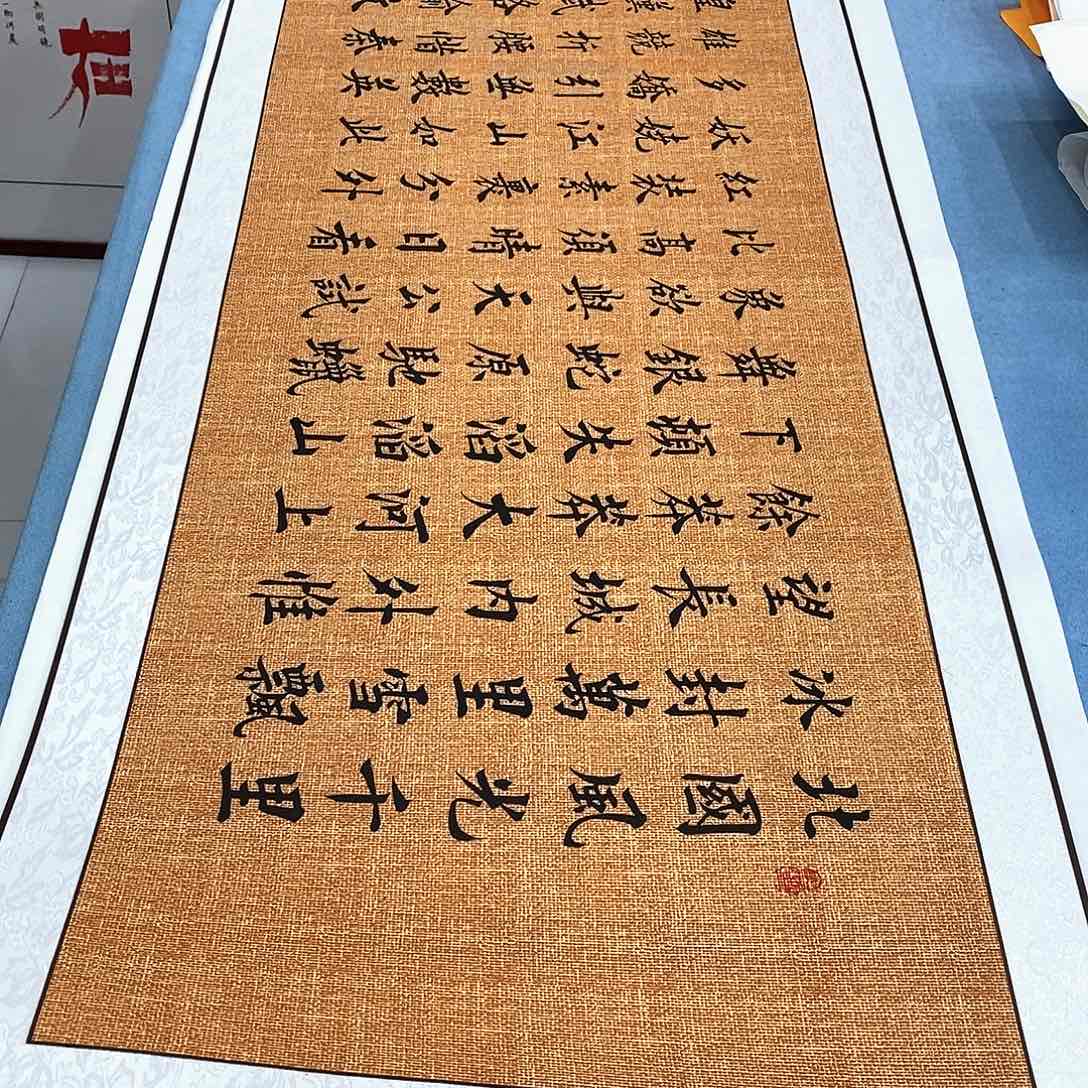 北國風光千里
冰封萬里雪飄
望長城内外惟
餘莽莽大河上
下頓失滔滔山
舞銀蛇原馳蠟
象欲與天公試
比高須晴日看
紅裝素裹分外
妖嬈江山如此
多嬌引無數英
雄競折腰惜秦
皇漢武略輸文